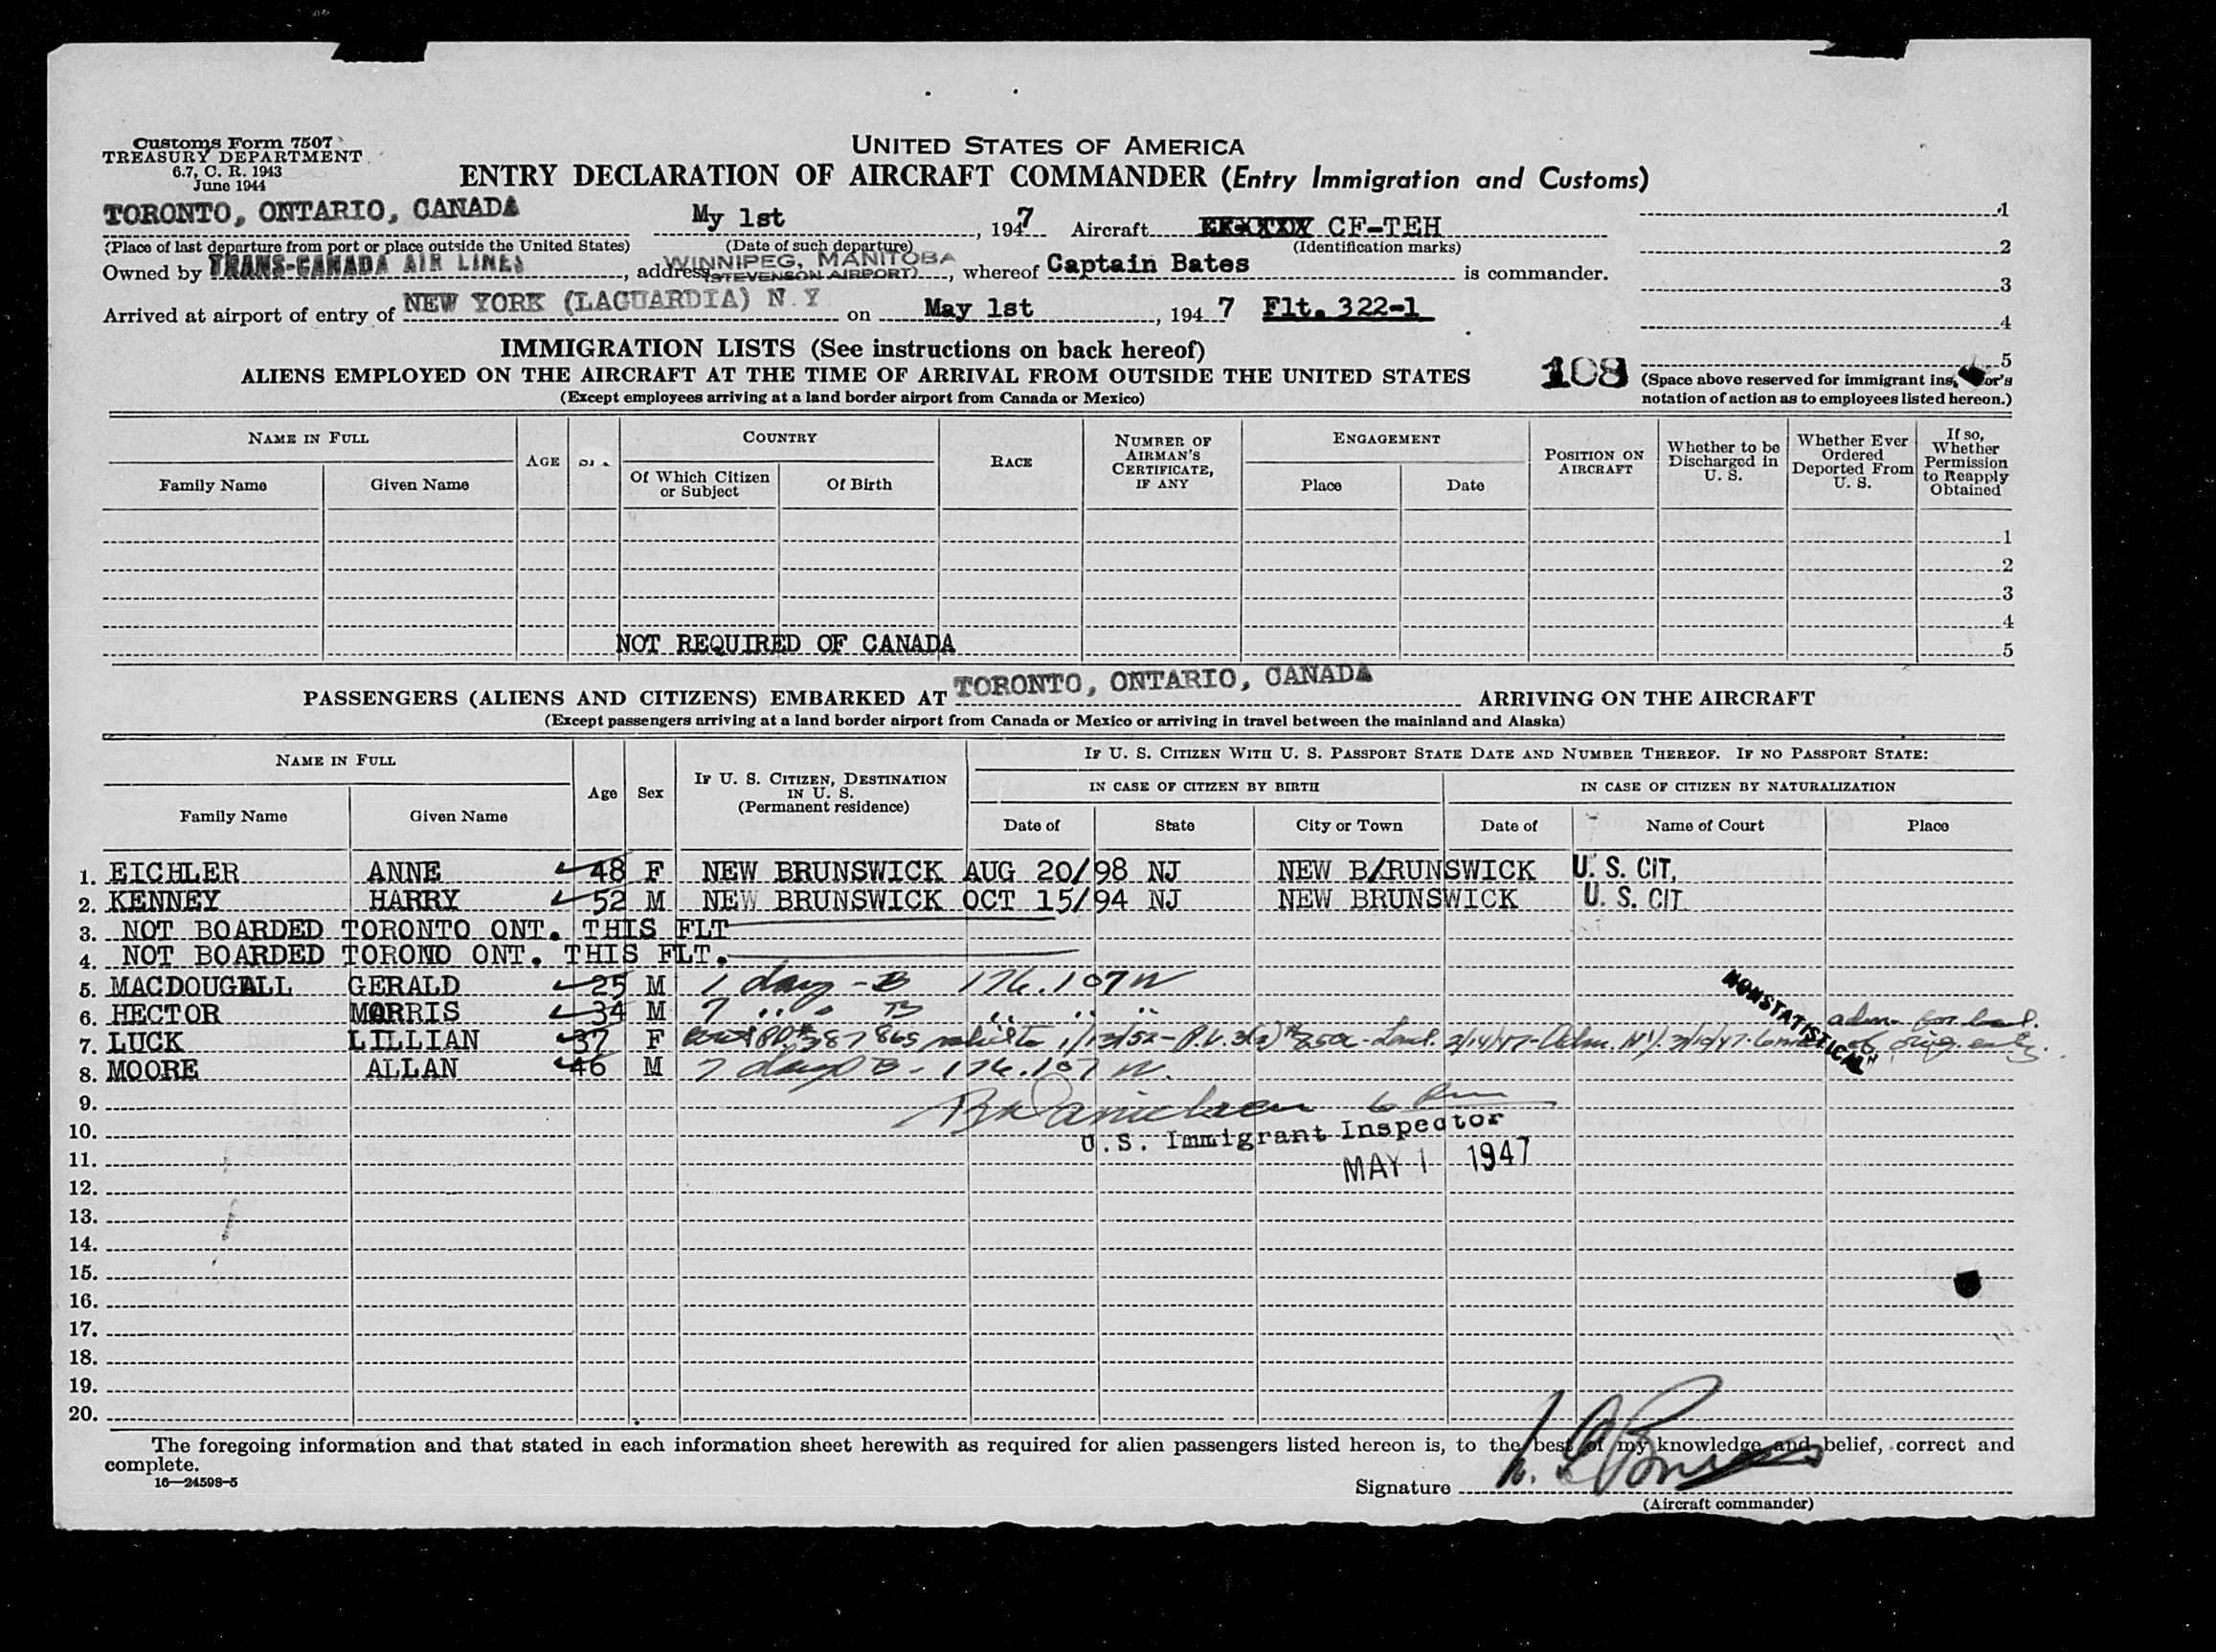 Customs Form 7507
TREASURY DEPARTMENT
6.7, C. R. 1943
June 1944
UNITED STATES OF AMERICA
ENTRY DECLARATION OF AIRCRAFT COMMANDER (Entry Immigration and Customs)
TORONTO, ONTARIO, CANADA My 1st, 1947 Aircraft CF-TEH 1
(Place of last departure from port or place outside the United States) (Date of such departure) (Identification marks) 2
Owned by TRANS-CANADA AIR LINES, address WINNIPEG, MANITOBA (STEVENSON AIRPORT), whereof Captain Bates is commander. 3
Arrived at airport of entry of NEW YORK (LAGUARDIA) N.Y on May 1st, 1947 Flt. 322-1 4
IMMIGRATION LISTS (See instructions on back hereof) 5
ALIENS EMPLOYED ON THE AIRCRAFT AT THE TIME OF ARRIVAL FROM OUTSIDE THE UNITED STATES 108 (Space above reserved for immigrant
(Except employees arriving at a land border airport from Canada or Mexico) notation of action as to employees listed hereon.)
NAME IN FULL AGE COUNTRY RACE NUMBER OF AIRMAN'S CERTIFICATE, IF ANY ENGAGEMENT POSITION ON AIRCRAFT Whether to be Discharged in U. S. Whether Ever Ordered Deported From U. S. If so, Whether Permission to Reapply Obtained
Family Name Given Name Of Which Citizen or Subject Of Birth Place Date
1
2
3
4
NOT REQUIRED OF CANADA 5
PASSENGERS (ALIENS AND CITIZENS) EMBARKED AT TORONTO, ONTARIO, CANADA ARRIVING ON THE AIRCRAFT
(Except passengers arriving at a land border airport from Canada or Mexico or arriving in travel between the mainland and Alaska)
NAME IN FULL Age Sex IF U. S. CITIZEN, DESTINATION IN U. S. (Permanent residence) IF U. S. CITIZEN WITH U. S. PASSPORT STATE DATE AND NUMBER THEREOF. IF NO PASSPORT STATE:
IN CASE OF CITIZEN BY BIRTH IN CASE OF CITIZEN BY NATURALIZATION
Family Name Given Name Date of State City or Town Date of Name of Court Place
1. EICHLER ANNE 48 F NEW BRUNSWICK AUG 20/98 NJ NEW B/RUNSWICK U. S. CIT.
2. KENNEY HARRY 52 M NEW BRUNSWICK OCT 15/94 NJ NEW BRUNSWICK U. S. CIT
3. NOT BOARDED TORONTO ONT. THIS FLT
4. NOT BOARDED TORONO ONT. THIS FLT.
5. MACDOUGALL GERALD 25 M 1 day - B 176.107 W
6. HECTOR MORRIS 34 M 7 " " B " " "
7. LUCK LILLIAN 37 F NONSTATISTICAL
8. MOORE ALLAN 46 M 7 days B - 176.107 W.
9.
10. U.S. Immigrant Inspector
11. MAY 1 1947
12.
13.
14.
15.
16.
17.
18.
19.
20.
The foregoing information and that stated in each information sheet herewith as required for alien passengers listed hereon is, to the best of my knowledge and belief, correct and
complete.
16—24598-5
Signature
(Aircraft commander)